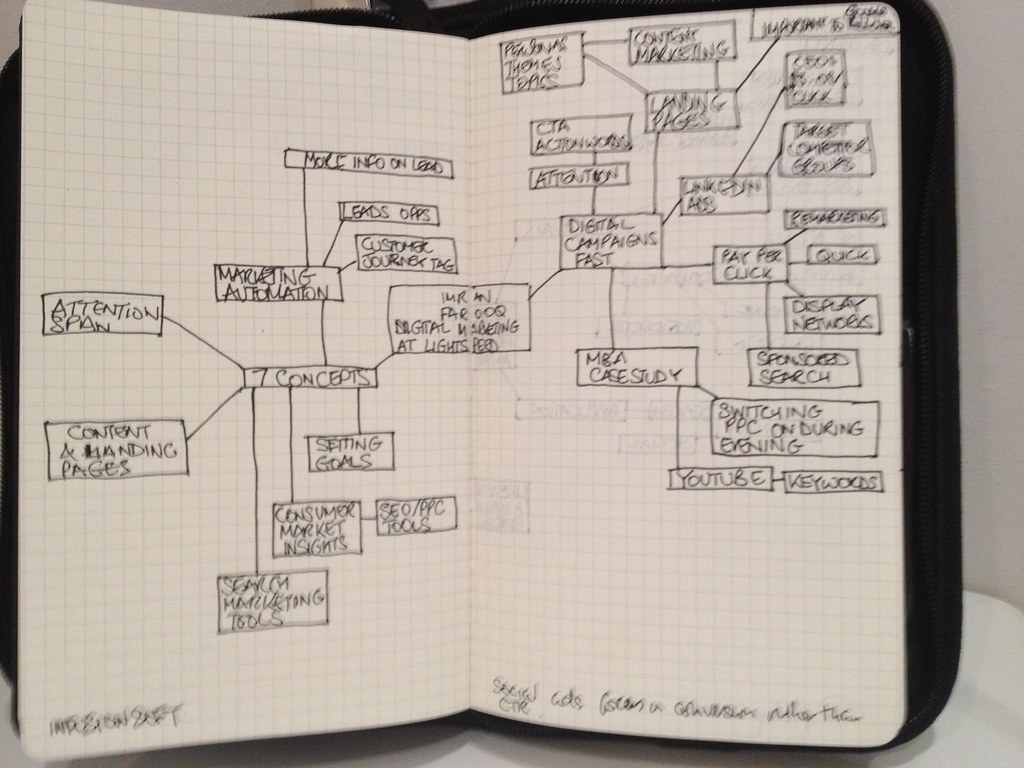 MORE INFO ON LEAD
LEADS OPPS
CUSTOMER
JOURNEY TAG
MARKETING
AUTOMATION
ATTENTION
SPAN
IMRAN
FAROOQ
DIGITAL MARKETING
AT LIGHTSPEED
7 CONCEPTS
CONTENT
& LANDING
PAGES
SETTING
GOALS
CONSUMER
MARKET
INSIGHTS
SEO/PPC
TOOLS
SEARCH
MARKETING
TOOLS
PERSONAS
THEMES
TOPICS
CONTENT
MARKETING
IMPORTANT TO
LANDING
PAGES
CLICK
CTA
ACTION WORDS
ATTENTION
TARGET
COMPETITOR
GROUPS
LINKEDIN
ADS
DIGITAL
CAMPAIGNS
FAST
REMARKETING
PAY PER
CLICK
QUICK
DISPLAY
NETWORKS
MBA
CASE STUDY
SPONSORED
SEARCH
SWITCHING
PPC ON DURING
EVENING
YOUTUBE
KEYWORDS
SOCIAL ads focus on conversion rather than
CTR